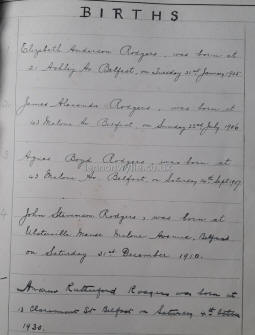 BIRTHS
1
Elizabeth Anderson Rodgers, was born at
2, Ashley Av Belfast, on Tuesday 31st January 1905.
2
James Alexander Rodgers, was born at
43 Malone Av Belfast, on Sunday 22nd July 1906
3
Agnes Boyd Rodgers, was born at
43 Malone Av. Belfast, on Saturday 14th Sept 1907
4
John Stevenson Rodgers, was born at
Manse Malone Avenue, Belfast
on Saturday 31st December 1910.
Andrew Rutherford Rodgers was born at
Claremont St Belfast on Saturday 4th October
1930.